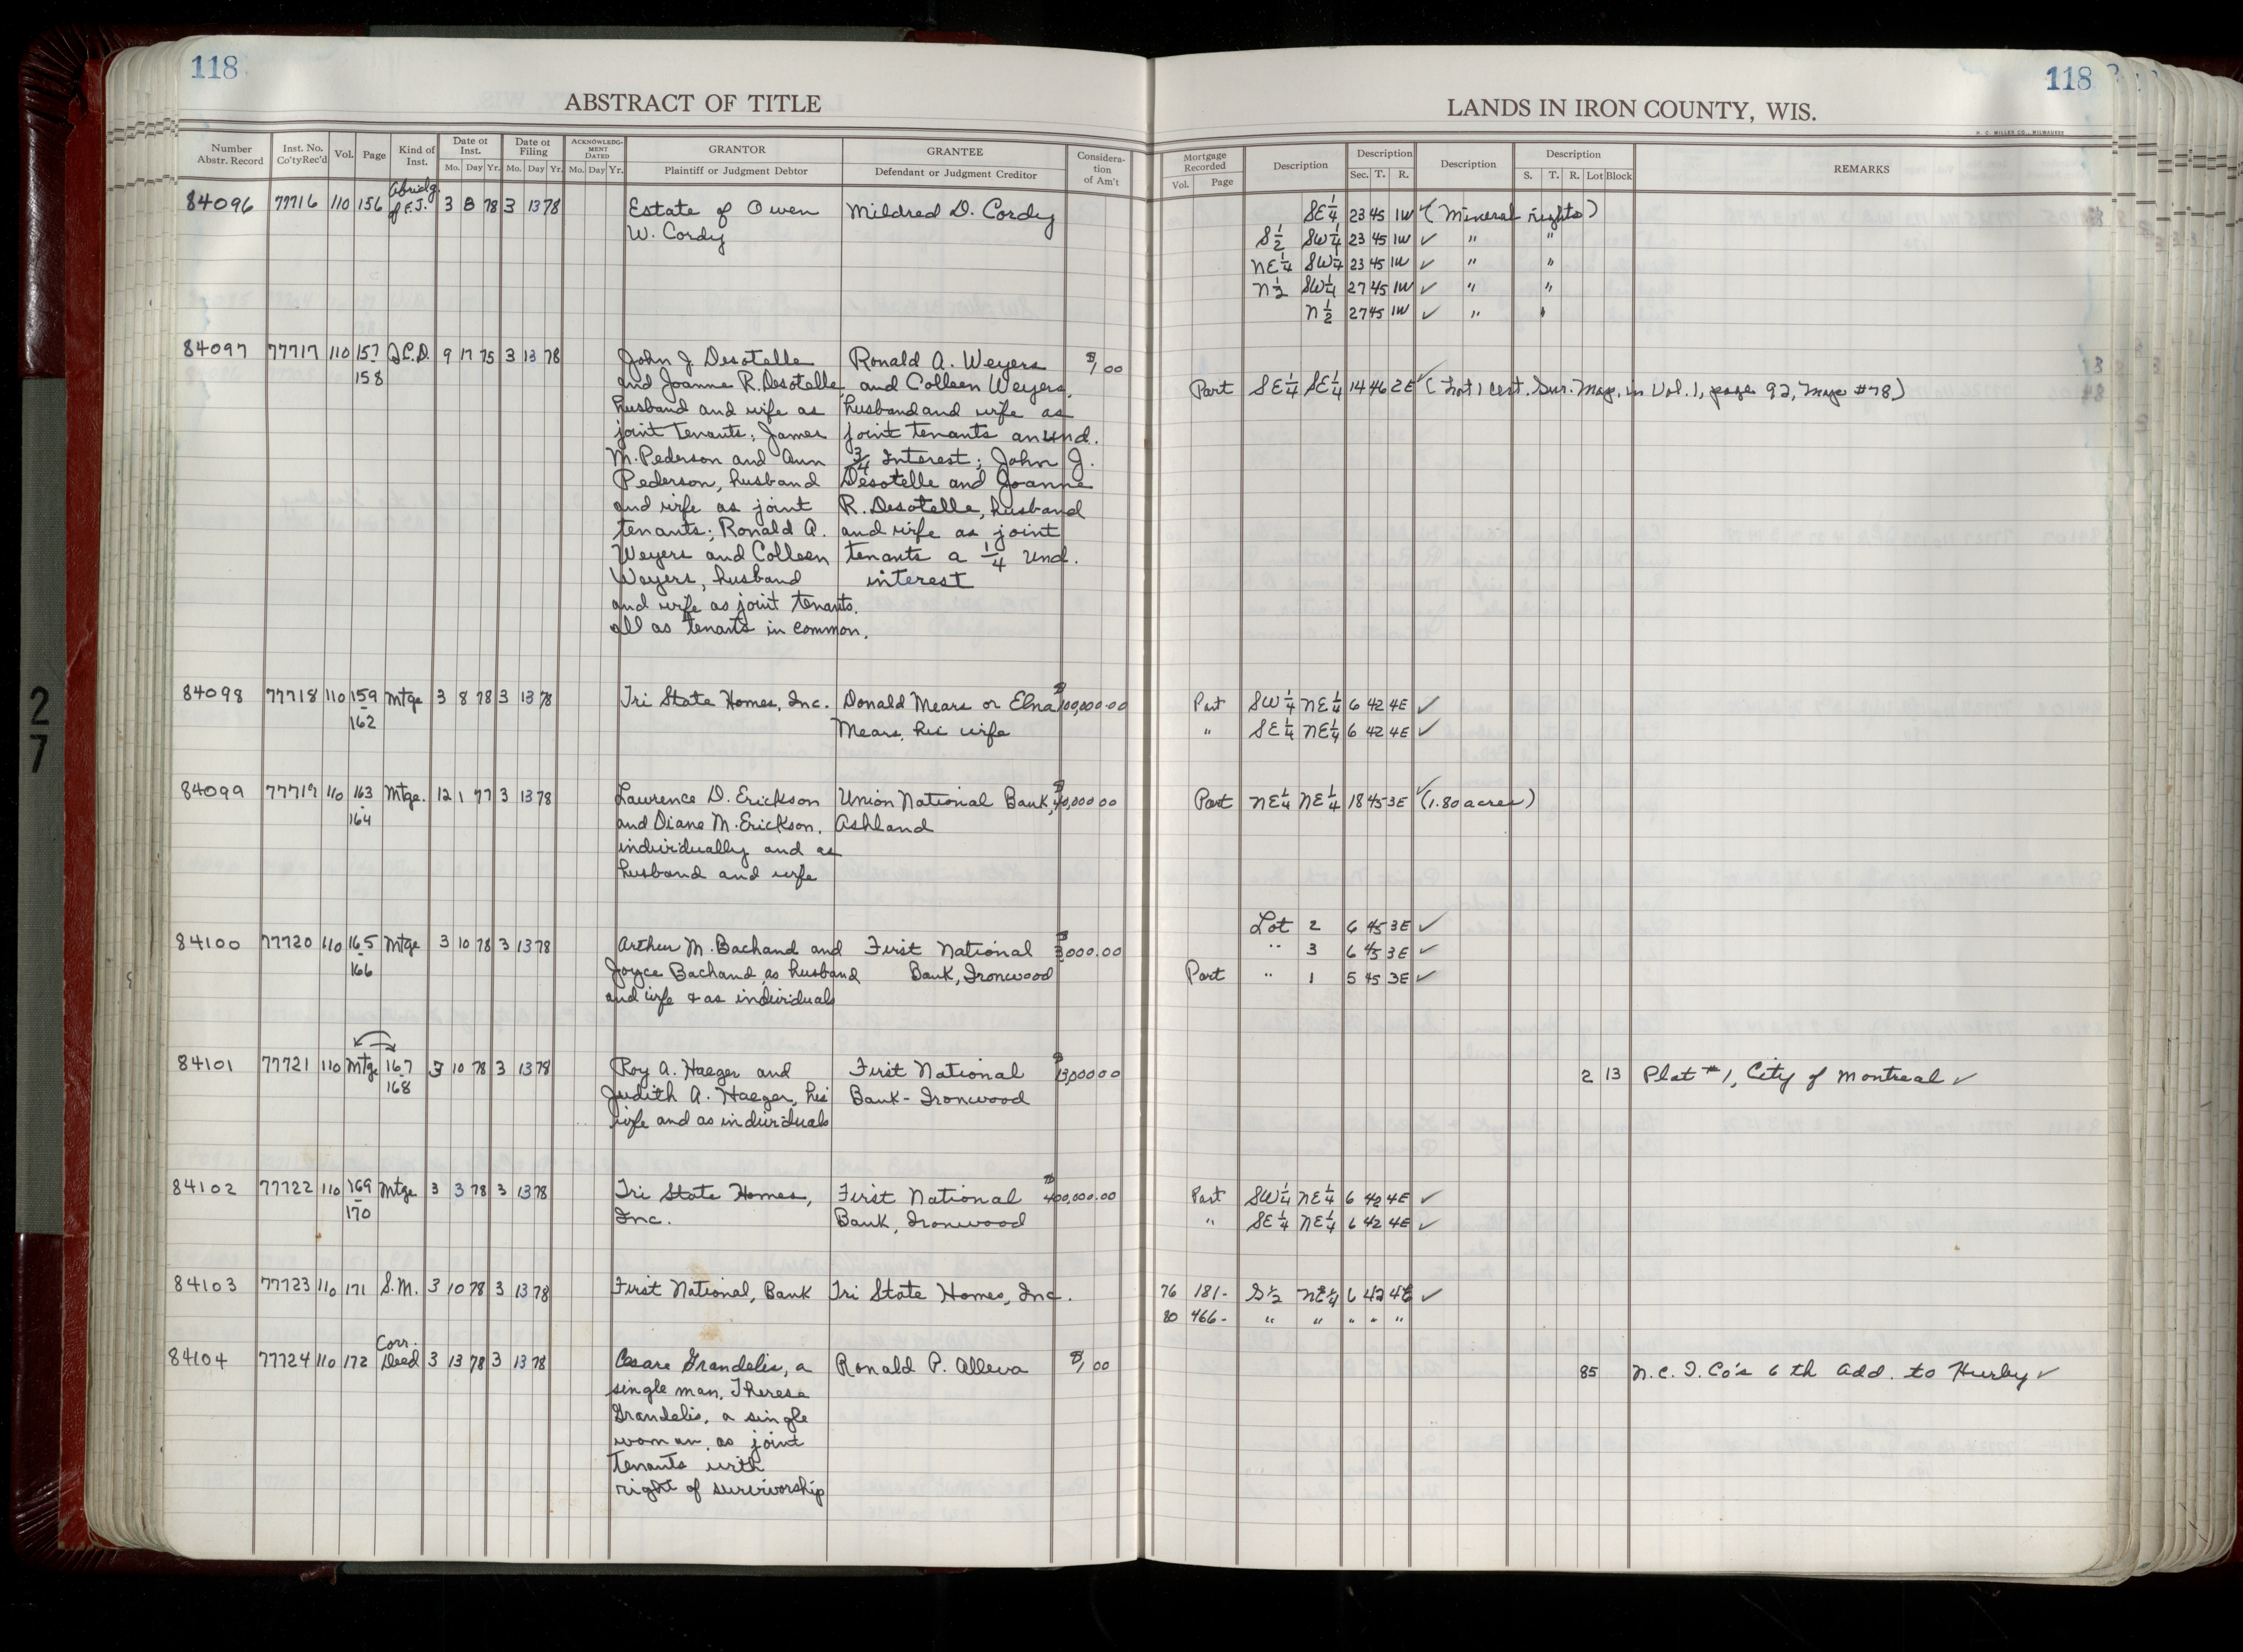 118
ABSTRACT OF TITLE
Number Abstr. Record
Inst. No. Co'ty Rec'd
Vol.
Page
Kind of Inst.
Date of Inst. Mo. Day Yr.
Date of Filing Mo. Day Yr.
ACKNOWLEDGMENT DATED Mo. Day Yr.
GRANTOR Plaintiff or Judgment Debtor
GRANTEE Defendant or Judgment Creditor
Consideration of Am't
118
LANDS IN IRON COUNTY, WIS.
H. C. MILLER CO., MILWAUKEE
Mortgage Recorded Vol. Page
Description
Description Sec. T. R.
Description
Description S. T. R. Lot Block
REMARKS
Abridg.
84096 77716 110 156 of F.J. 3 8 78 3 13 78 Estate of Owen Mildred D. Cordy SE 1/4 23 45 1W ✓ (Mineral rights)
W. Cordy S 1/2 SW 1/4 23 45 1W ✓ " "
NE 1/4 SW 1/4 23 45 1W ✓ " "
N 1/2 SW 1/4 27 45 1W ✓ " "
N 1/2 27 45 1W ✓ " "
84097 77717 110 157 Q.C.D. 9 17 75 3 13 78 John J. Desotelle Ronald A. Weyers $1.00
158 and Joanne R. Desotelle, and Colleen Weyers, Part SE 1/4 SE 1/4 14 46 2E ✓ (Lot 1 Cert. Sur. Map, in Vol. 1, page 92, Map #78)
husband and wife as husband and wife as
joint tenants; James joint tenants an und.
M. Pederson and Ann 3/4 Interest; John J.
Pederson, husband Desotelle and Joanne
and wife as joint R. Desotelle, husband
tenants; Ronald A. and wife as joint
Weyers and Colleen tenants a 1/4 und.
Weyers, husband interest
and wife as joint tenants.
all as tenants in common.
84098 77718 110 159 Mtge 3 8 78 3 13 78 Tri State Homes, Inc. Donald Mears or Elna $100,000.00 Part SW 1/4 NE 1/4 6 42 4E ✓
162 Mears, his wife " SE 1/4 NE 1/4 6 42 4E ✓
84099 77719 110 163 Mtge. 12 1 77 3 13 78 Lawrence D. Erickson Union National Bank, Part NE 1/4 NE 1/4 18 45 3E ✓ (1.80 acres)
164 and Diane M. Erickson, Ashland
individually and as
husband and wife
Lot 2 6 45 3E ✓
84100 77720 110 165 Mtge 3 10 78 3 13 78 Arthur M. Bachand and First National $3,000.00 " 3 6 45 3E ✓
166 Joyce Bachand, as husband Bank, Ironwood Part " 1 5 45 3E ✓
and wife & as individuals
84101 77721 110 Mtge 167 3 10 78 3 13 78 Roy A. Haeger and First National $13,000.00 2 13 Plat #1, City of Montreal ✓
168 Judith A. Haeger, his Bank - Ironwood
wife and as individuals
84102 77722 110 169 Mtge 3 3 78 3 13 78 Tri State Homes, First National $400,000.00 Part SW 1/4 NE 1/4 6 42 4E ✓
170 Inc. Bank, Ironwood " SE 1/4 NE 1/4 6 42 4E ✓
84103 77723 110 171 S.M. 3 10 78 3 13 78 First National, Bank Tri State Homes, Inc. 76 181- S 1/2 NE 1/4 6 42 4E ✓
80 466- " " " " "
Corr.
84104 77724 110 172 Deed 3 13 78 3 13 78 Cesare Grandelis, a Ronald P. Alleva $1.00 85 N.C.I. Co's 6th Add. to Hurley ✓
single man, Theresa
Grandelis, a single
woman, as joint
tenants with
right of survivorship
27